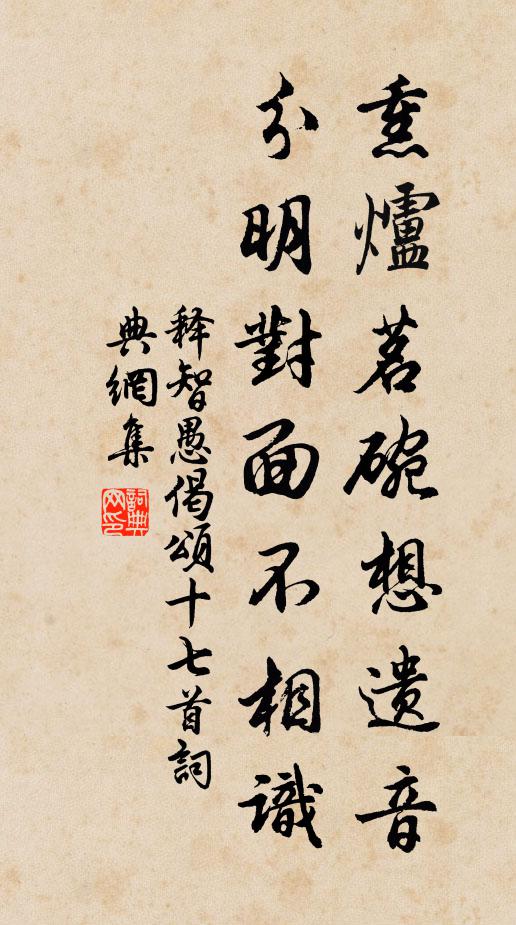 熏爐茗碗想遗音
分明對面不相識
释智愚偈頌十七首詞
典網集
詞典网印